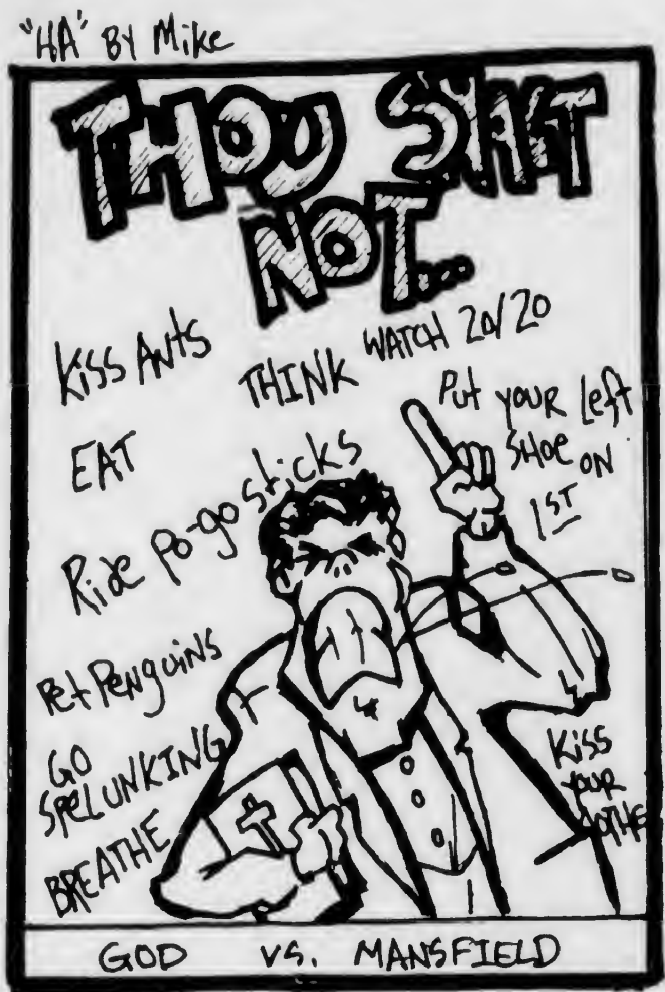 "HA" BY Mike
THOU SHALT
NOT...
Kiss ANts
THINK
WATCH 20/20
EAT
Put your Left
SHOE ON
1ST
Ride po-go sticks
Pet Penguins
GO
SPELUNKING
BREATHE
Kiss
your
GOD VS. MANSFIELD